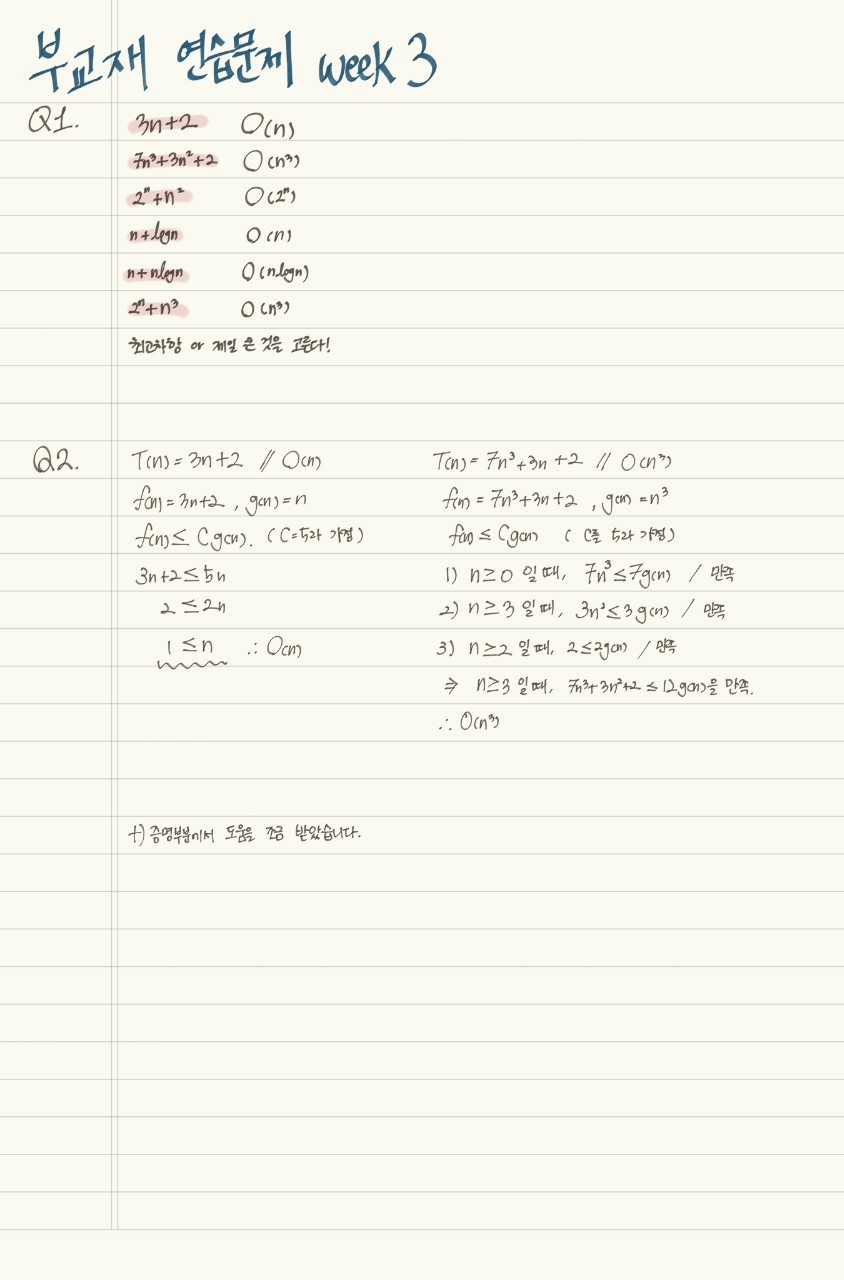 부교재 연습문제 week 3
Q1. 3n+2 O(n)
7n³+3n²+2 O(n³)
2ⁿ+n² O(2ⁿ)
n+logn O(n)
n+nlogn O(nlogn)
2ⁿ+n³ O(n³)
최고차항 or 제일 큰 것을 고른다!
Q2. T(n) = 3n+2 // O(n)
f(n) = 3n+2 , g(n) = n
f(n) ≤ C g(n). (C=5라 가정)
3n+2 ≤ 5n
2 ≤ 2n
1 ≤ n ∴ O(n)
T(n) = 7n³+3n+2 // O(n³)
f(n) = 7n³+3n+2 , g(n) = n³
f(n) ≤ Cg(n) ( C를 5라 가정)
1) n≥0 일 때, 7n³≤7g(n) / 만족
2) n≥3 일 때, 3n²≤3g(n) / 만족
3) n≥2 일 때, 2≤2g(n) / 만족
⇒ n≥3 일 때, 7n³+3n²+2 ≤ 12g(n)을 만족.
∴ O(n³)
+) 증명부분에서 도움을 조금 받았습니다.